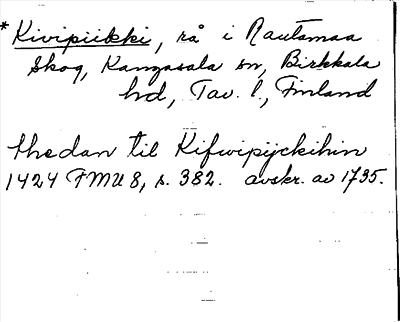 * Kivipiikki, rå i Rautamaa
skog, Kangasala sn, Birkkala
hd, Tav. l., Finland
thedan til Kifwipijckihin
1424 FMU 8, s. 382. avskr. av 1735.